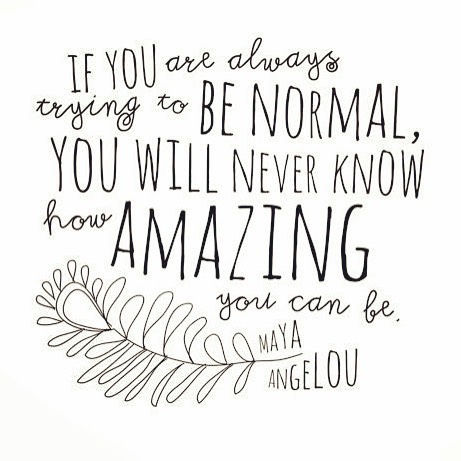 IF YOU are always
trying to BE NORMAL,
YOU WILL NEVER KNOW
how AMAZING
you can be.
MAYA
ANGELOU